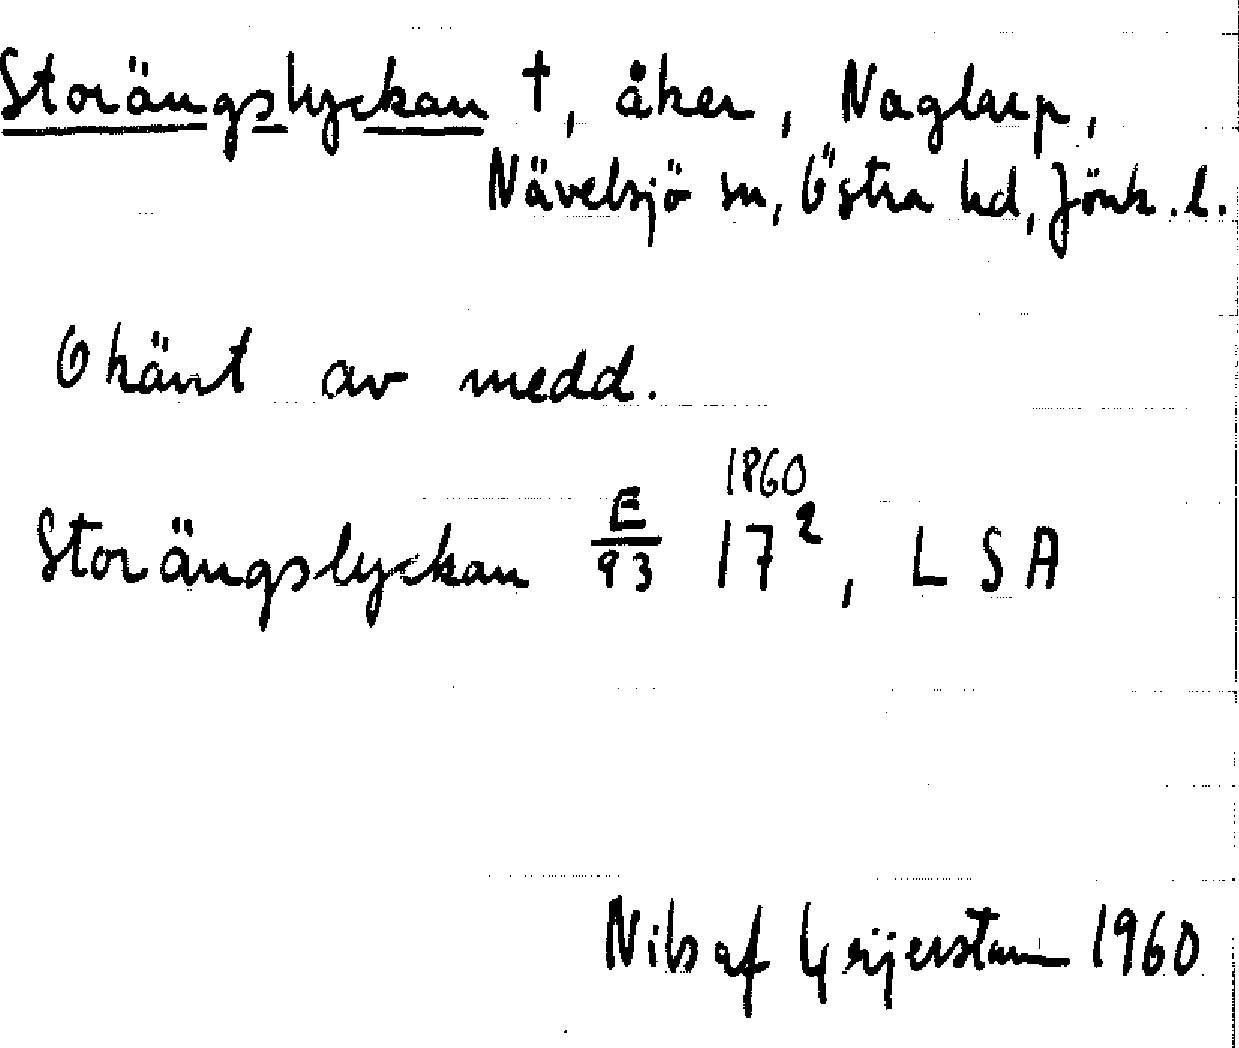 Storängslyckan †, åker, Naglarp,
Nävelsjö sn, Östra hd, Jönk.l.
Okänt av medd.
1860
Storängslyckan E/93 17², LSA
Nils af Geijerstam 1960